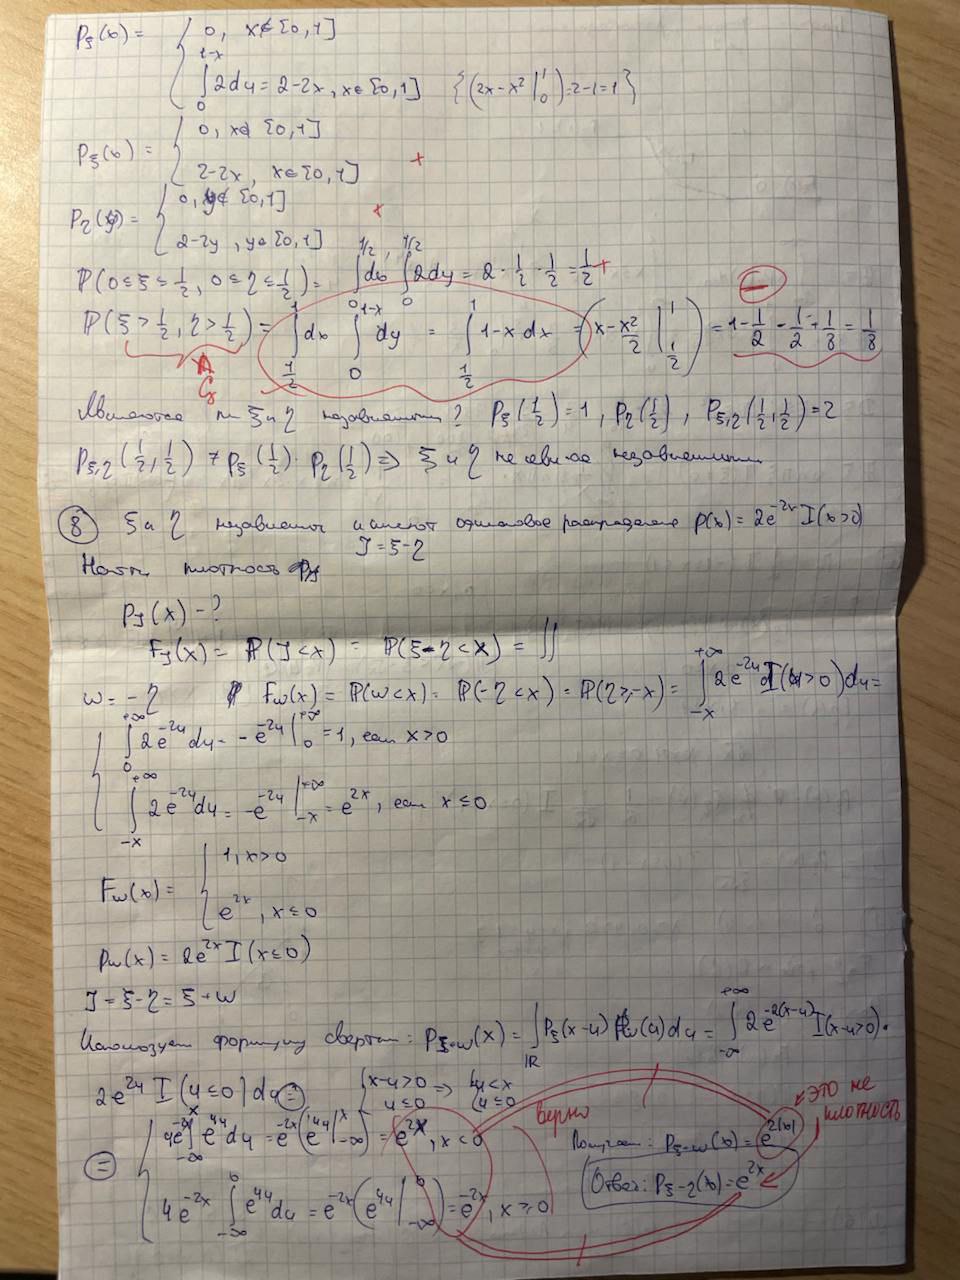 Pξ(x) = { 0, x∉[0,1]
∫₀^{1-x} 2dy = 2-2x, x∈[0,1] {(2x-x²|₀¹)=2-1=1}
Pξ(x) = { 0, x∉[0,1]
2-2x, x∈[0,1] +
Pη(y) = { 0, y∉[0,1] +
2-2y, y∈[0,1]
ℙ(0≤ξ≤1/2, 0≤η≤1/2) = ∫₀^{1/2} dx ∫₀^{1/2} 2dy = 2·1/2·1/2 = 1/2 +
ℙ(ξ>1/2, η>1/2) = ∫_{1/2}^1 dx ∫₀^{1-x} dy = ∫_{1/2}^1 1-x dx = (x-x²/2 |_{1/2}^1) = 1-1/2-1/2+1/8 = 1/8 −
Являются ли ξ и η независимыми? Pξ(1/2)=1, Pη(1/2), Pξ,η(1/2,1/2)=2
Pξ,η(1/2,1/2) ≠ Pξ(1/2)·Pη(1/2) ⇒ ξ и η не явл-ся независимыми
⑧ ξ и η независимы и имеют одинаковое распределение p(x)=2e^{-2x} I(x>0)
J = ξ-η
Найти плотность PJ
PJ(x) - ?
FJ(x) = ℙ(J<x) = ℙ(ξ-η<x) = ∬
w = -η Fw(x) = ℙ(w<x) = ℙ(-η<x) = ℙ(η>-x) = ∫_{-x}^{+∞} 2e^{-2y} I(y>0)dy =
{ ∫₀^{+∞} 2e^{-2y}dy = -e^{-2y}|₀^{+∞} = 1, если x>0
∫_{-x}^{+∞} 2e^{-2y}dy = -e^{-2y}|_{-x}^{+∞} = e^{2x}, если x≤0
Fw(x) = { 1, x>0
e^{2x}, x≤0
Pw(x) = 2e^{2x} I(x≤0)
J = ξ-η = ξ+w
Используем формулу свертки: Pξ+w(x) = ∫_ℝ Pξ(x-y) Pw(y)dy = ∫_{-∞}^{+∞} 2e^{-2(x-y)} I(x-y>0)·
2e^{2y} I(y≤0)dy = { x-y>0 y≤0 ⇒ { y<x y≤0
это не плотность
верно
= { 4e^{-2x} ∫_{-∞}^x e^{4y}dy = e^{-2x}(e^{4y}|_{-∞}^x) = e^{2x}, x<0
Получаем: Pξ+w(x) = e^{2|x|}
4e^{-2x} ∫_{-∞}^0 e^{4y}dy = e^{-2x}(e^{4y}|_{-∞}^0) = e^{-2x}, x≥0
Ответ: Pξ-η(x) = e^{2x}